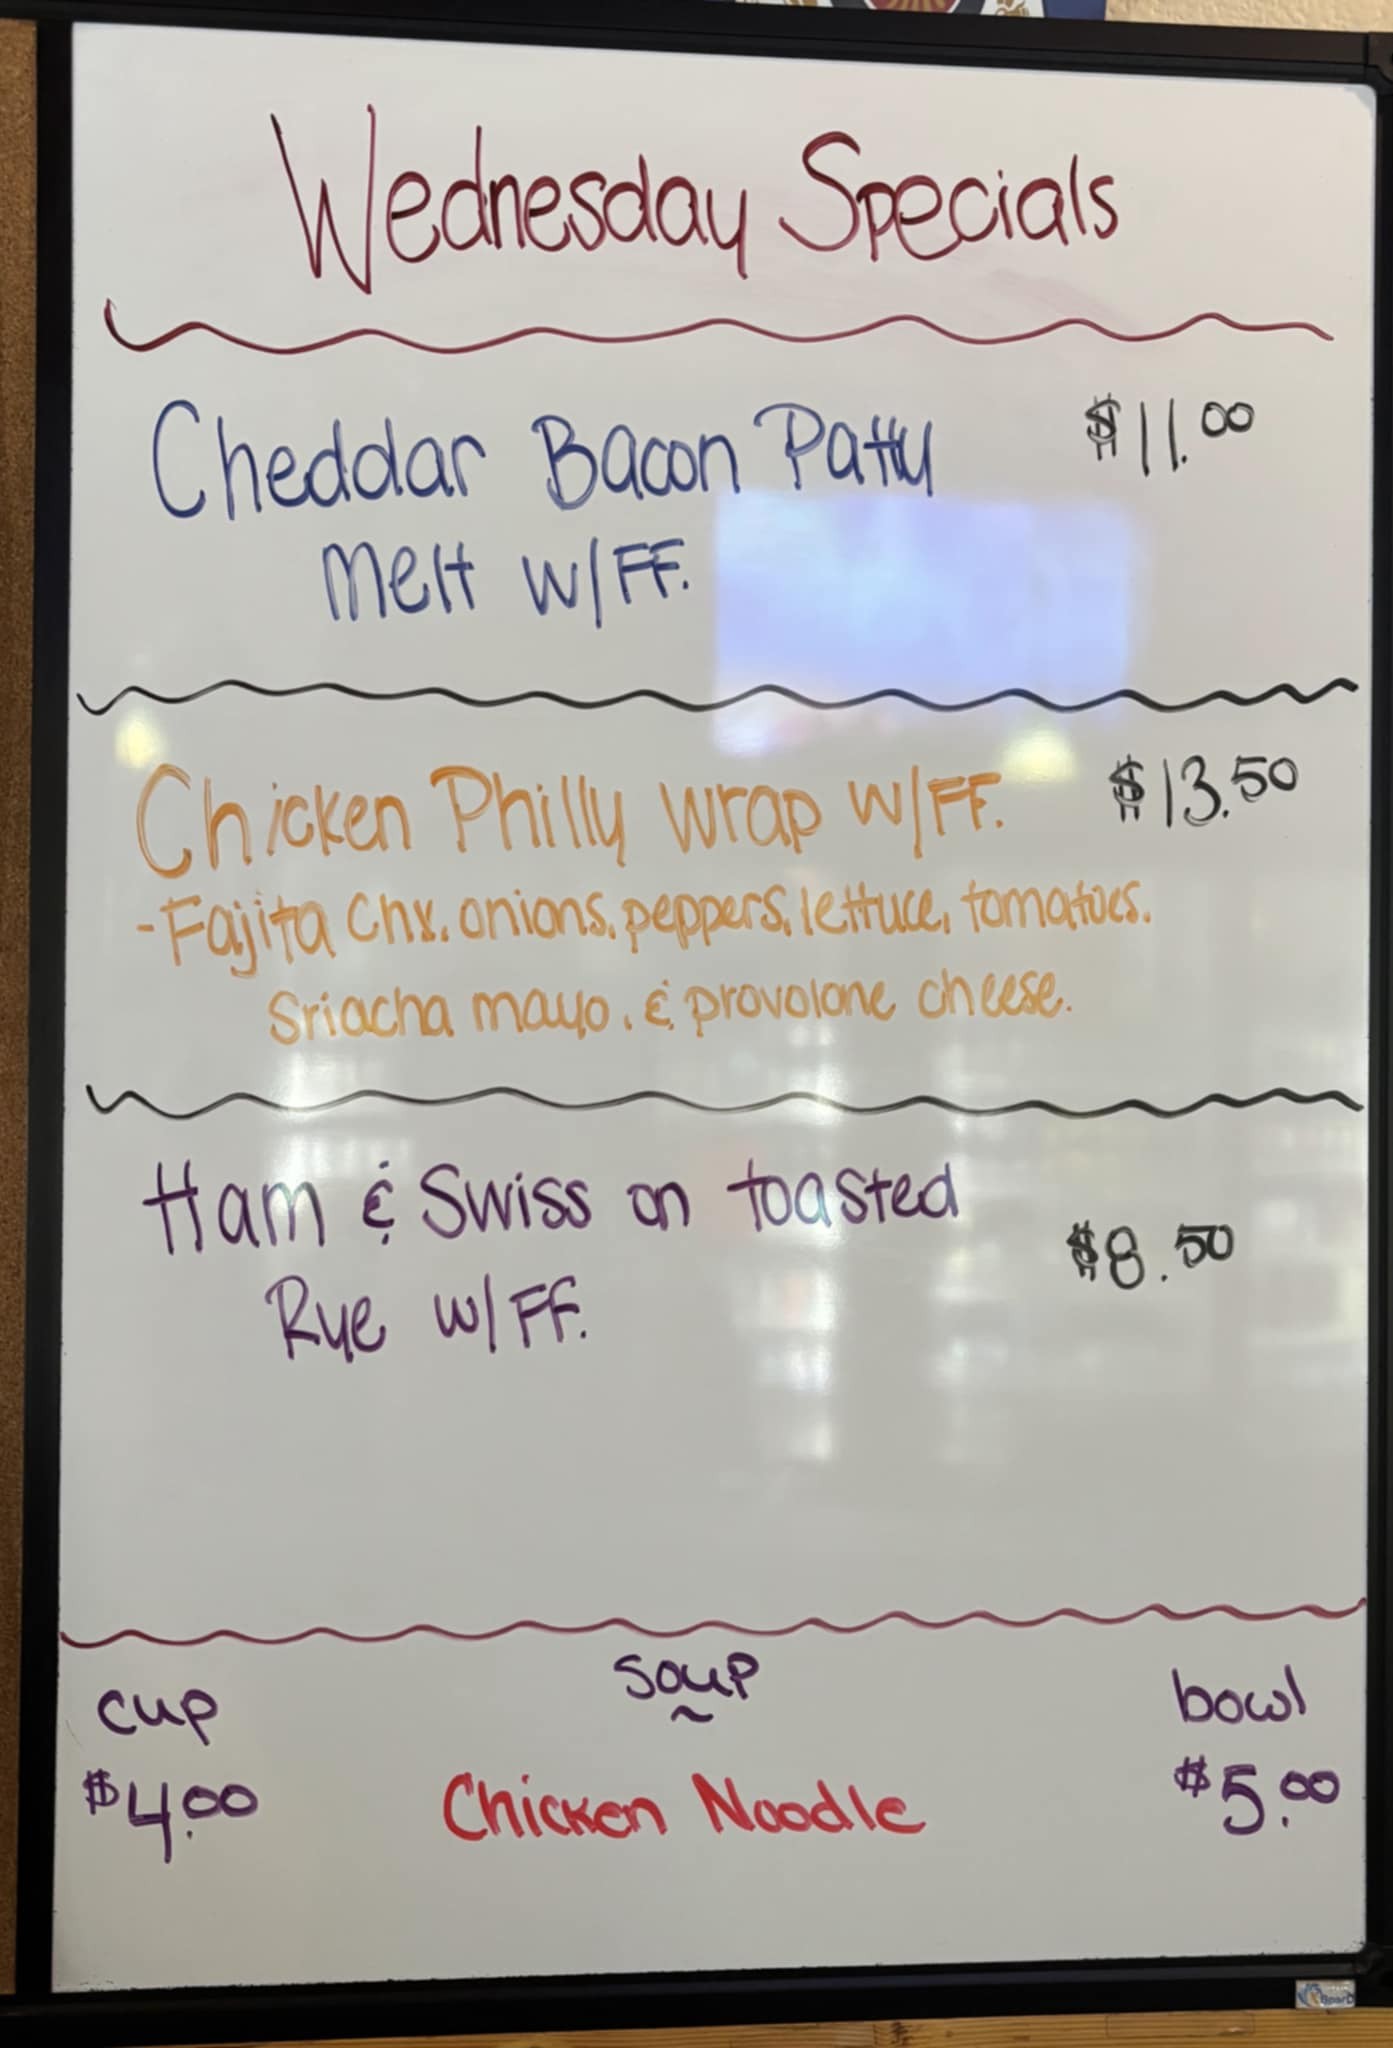 Wednesday Specials
Cheddar Bacon Patty $11.00
Melt w/FF.
Chicken Philly Wrap w/FF. $13.50
- Fajita Chx. onions, peppers, lettuce, tomatoes.
Sriacha mayo. & provolone cheese.
Ham & Swiss on toasted
Rye w/FF. $8.50
cup soup bowl
$4.00 Chicken Noodle $5.00